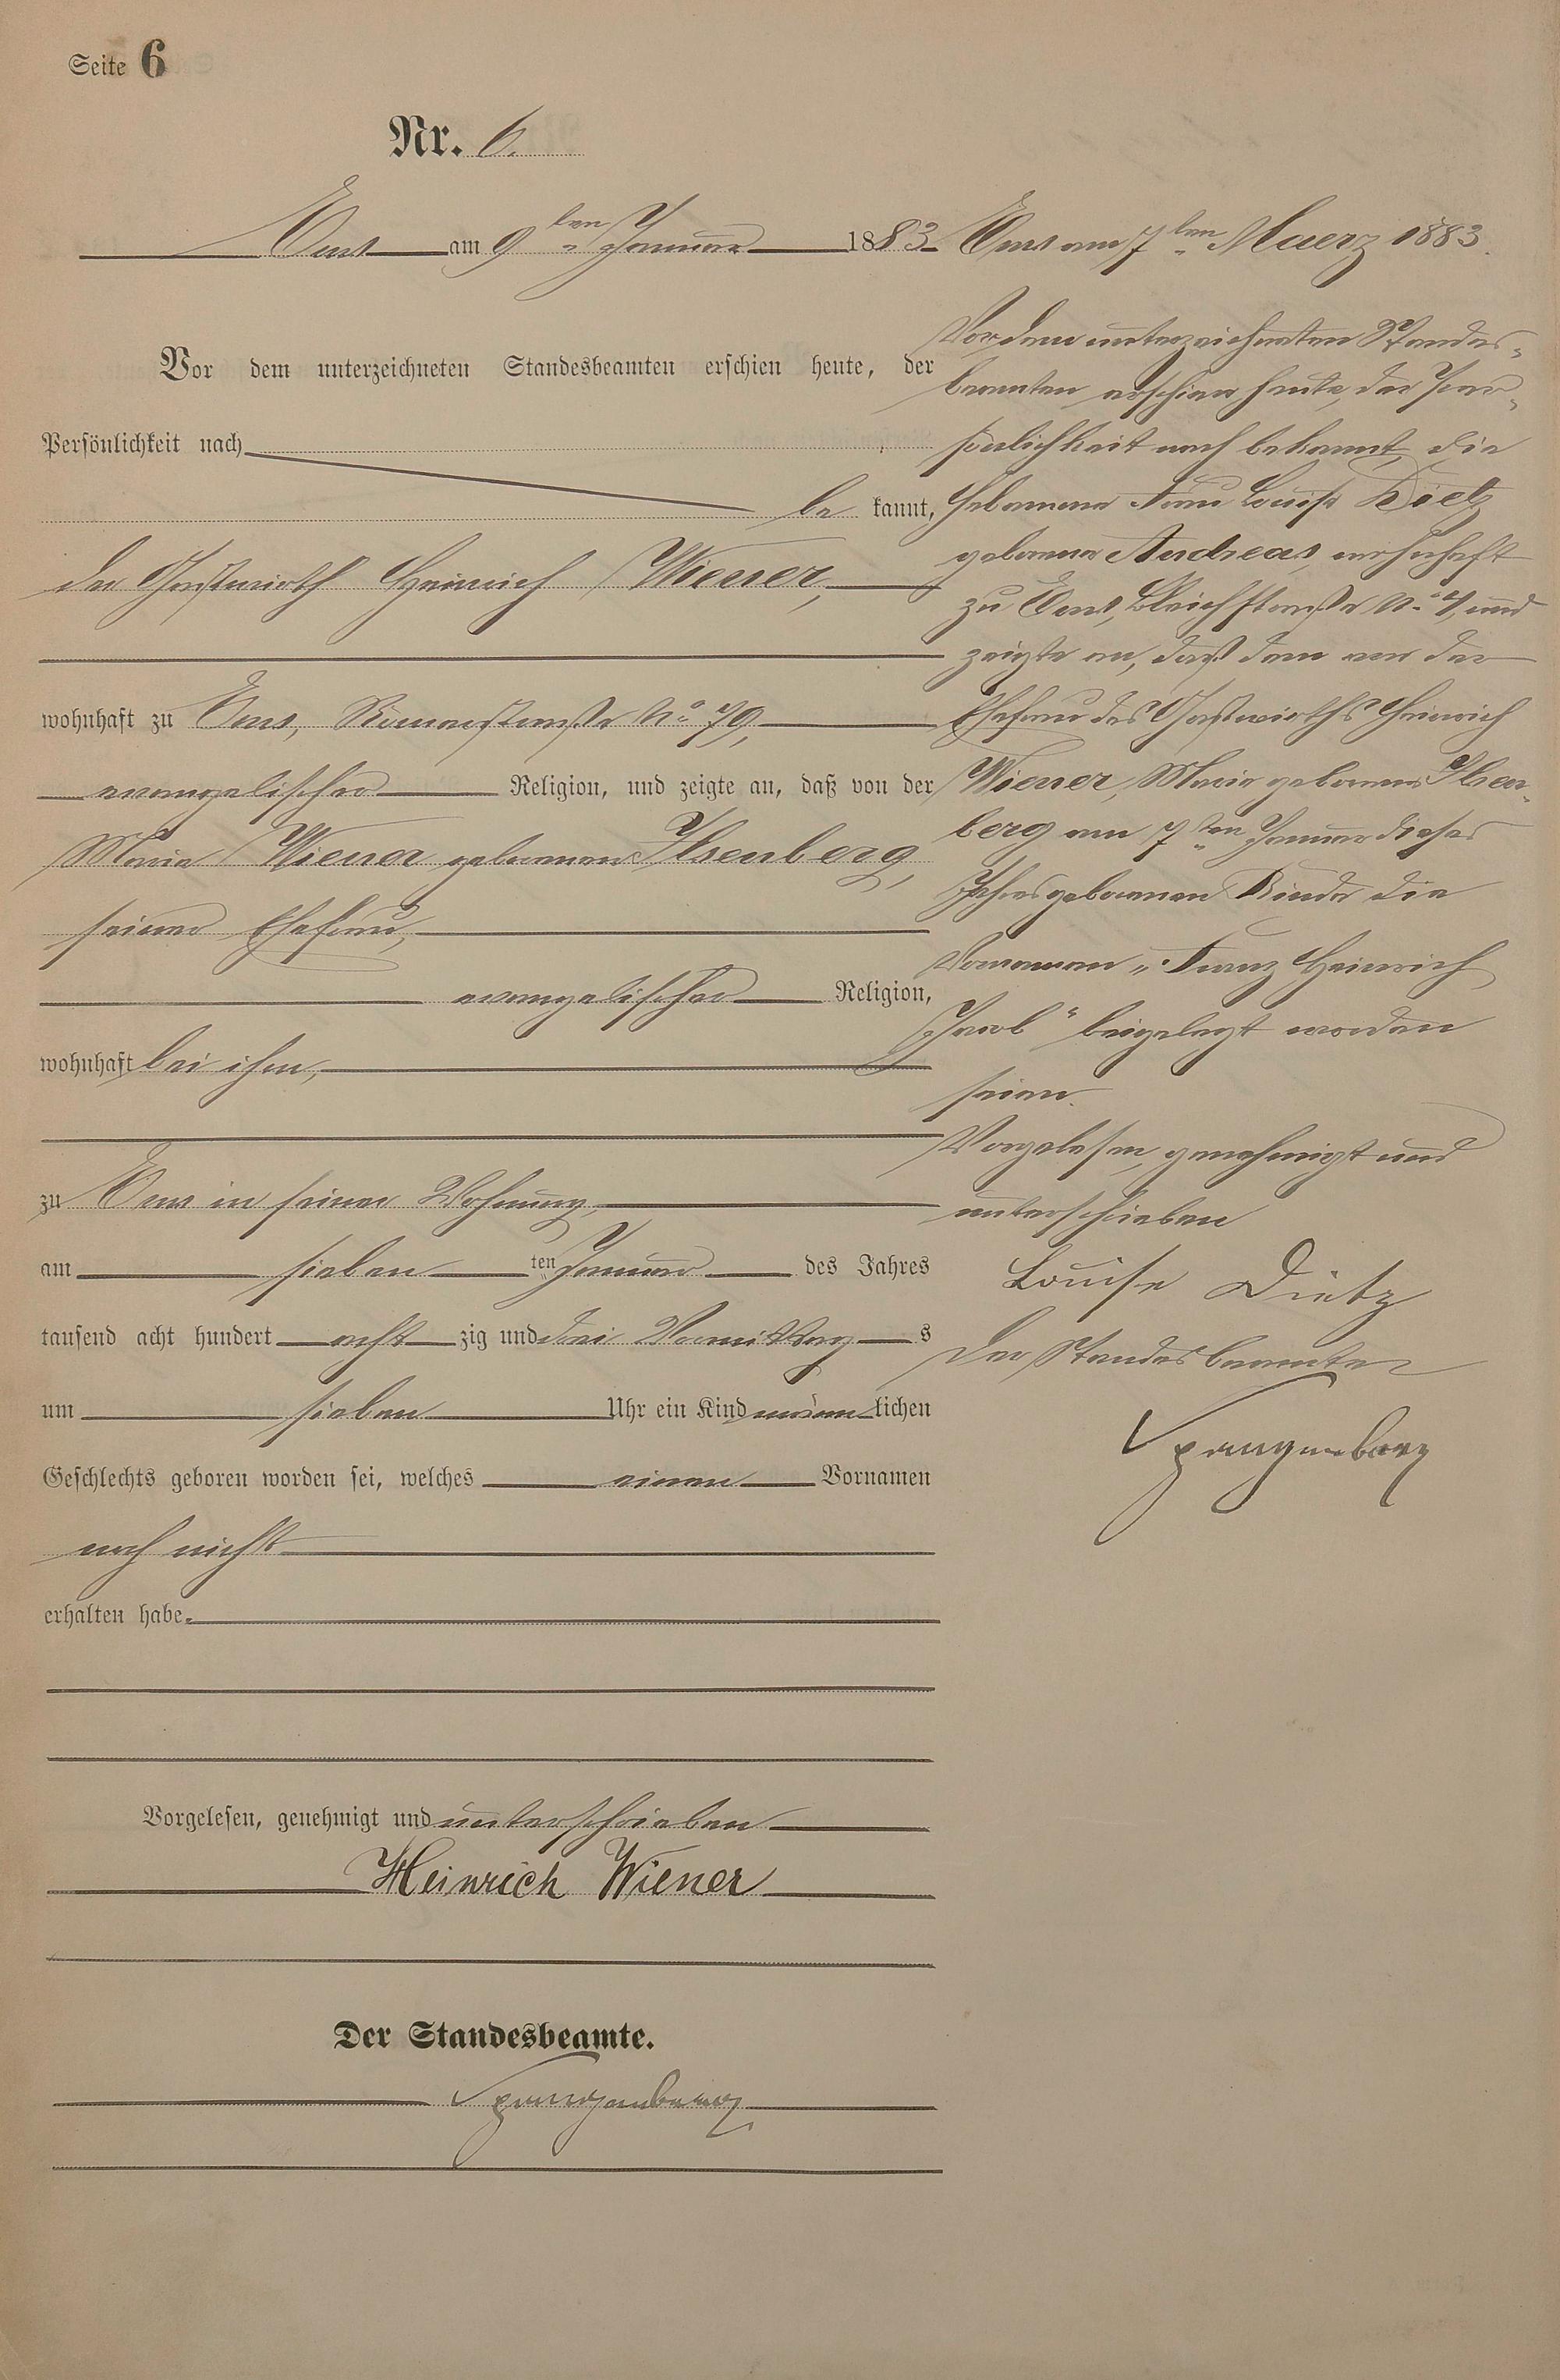 Seite 6
Nr. 6.
Ems am 9ten Januar 1883
Vor dem unterzeichneten Standesbeamten erschien heute, der
Persönlichkeit nach
be kannt,
der Gastwirth Heinrich Wiener,
wohnhaft zu Ems, Römerstraße No 79,
evangelischer Religion, und zeigte an, daß von der
Maria Wiener geborenen Ilsenberg,
seiner Ehefrau,
evangelischer Religion,
wohnhaft bei ihm,
zu Ems in seiner Wohnung,
am sieben ten Januar des Jahres
tausend acht hundert acht zig und drei Vormittag s
um sieben Uhr ein Kind männ lichen
Geschlechts geboren worden sei, welches einen Vornamen
noch nicht
erhalten habe.
Vorgelesen, genehmigt und unterschrieben
Heinrich Wiener
Der Standesbeamte.
Spangenberg
Ems am 7ten Maerz 1883.
Vor dem unterzeichneten Standes-
beamten erschien heute, der Per-
sönlichkeit nach bekannt, die
Hebamme Frau Louise Dietz
geborene Andreas, wohnhaft
zu Ems, Bleichstraße No 7, und
zeigte an, daß dem von der
Ehefrau des Gastwirths Heinrich
Wiener, Maria geborenen Ilsen-
berg am 7ten Januar dieses
Jahres geborenen Kinde die
Vornamen „Franz Heinrich
Jacob“ beigelegt worden
seien.
Vorgelesen, genehmigt und
unterschrieben
Louise Dietz
Der Standesbeamte
Spangenberg